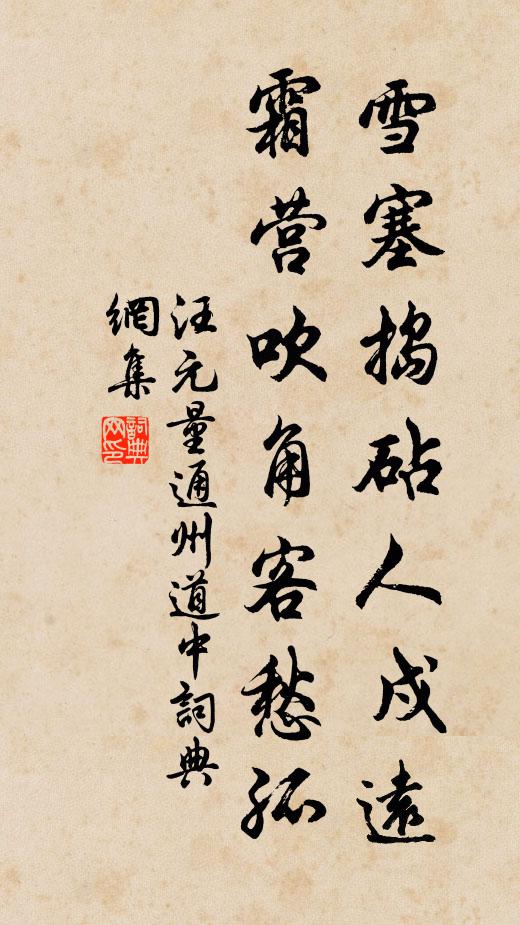 雪塞搗砧人戍遠
霜营吹角客愁孤
汪元量通州道中詞典
網集
詞典
网印